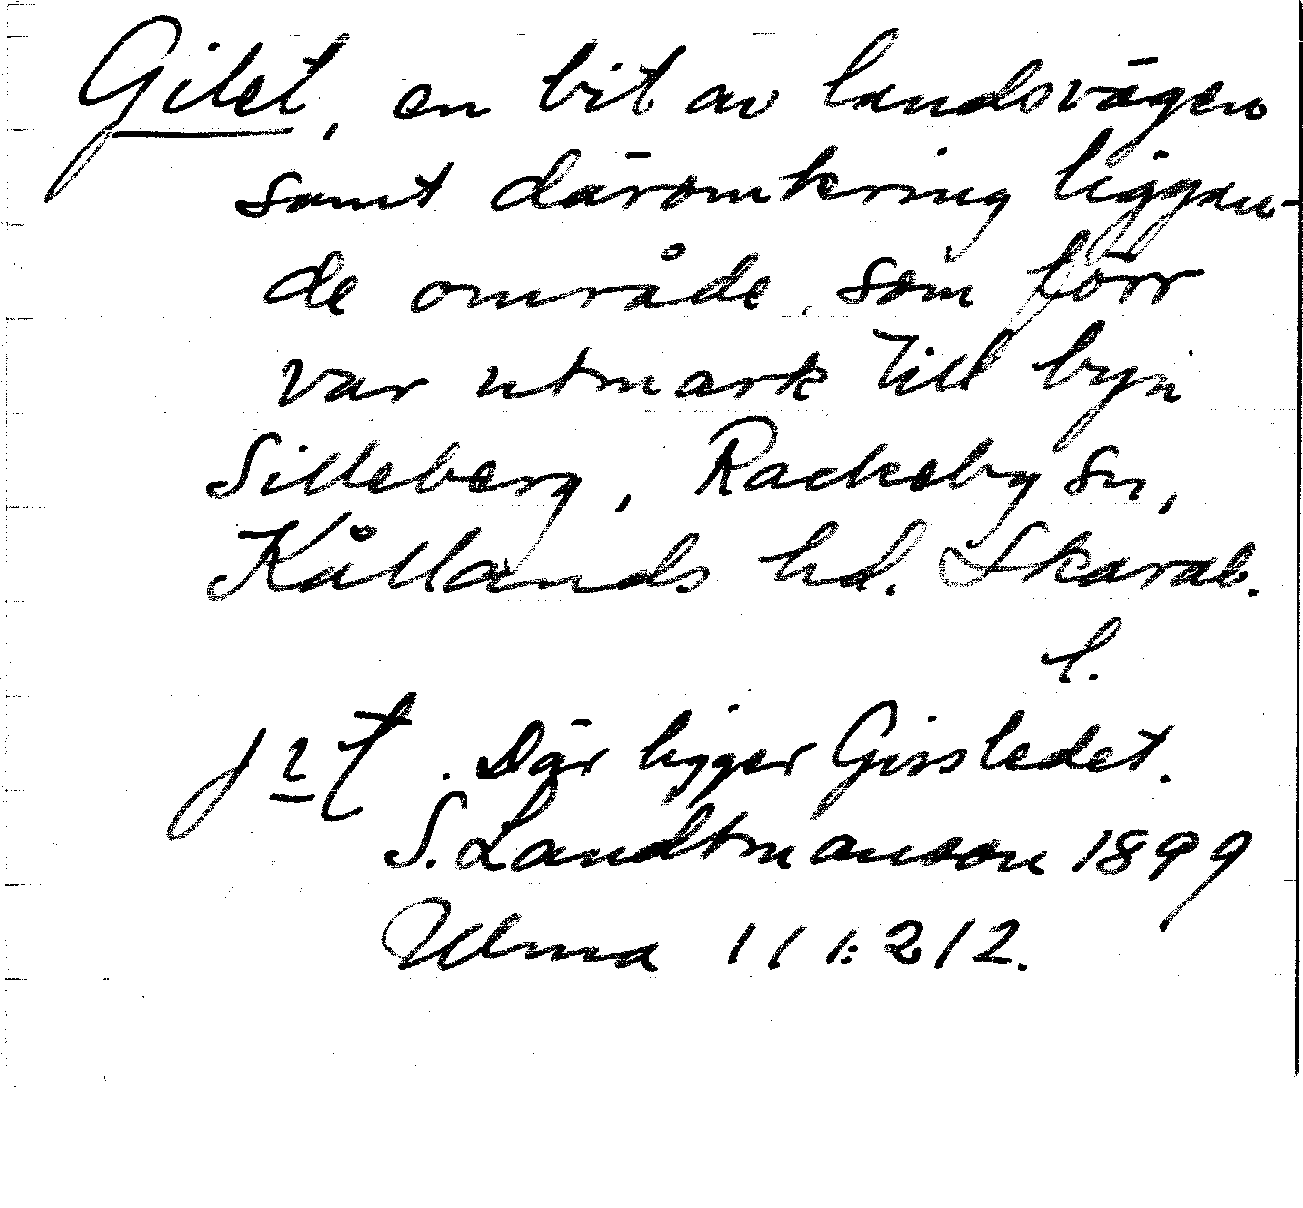 Gilet, en bit av landsvägen
samt däromkring liggan-
de område, som förr
var utmark till byn
Silleberg, Rackeby sn,
Kållands hd. Skarab.
l.
. Där ligger Gissledet.
S. Landtmanson 1899
Ulma 111:212.